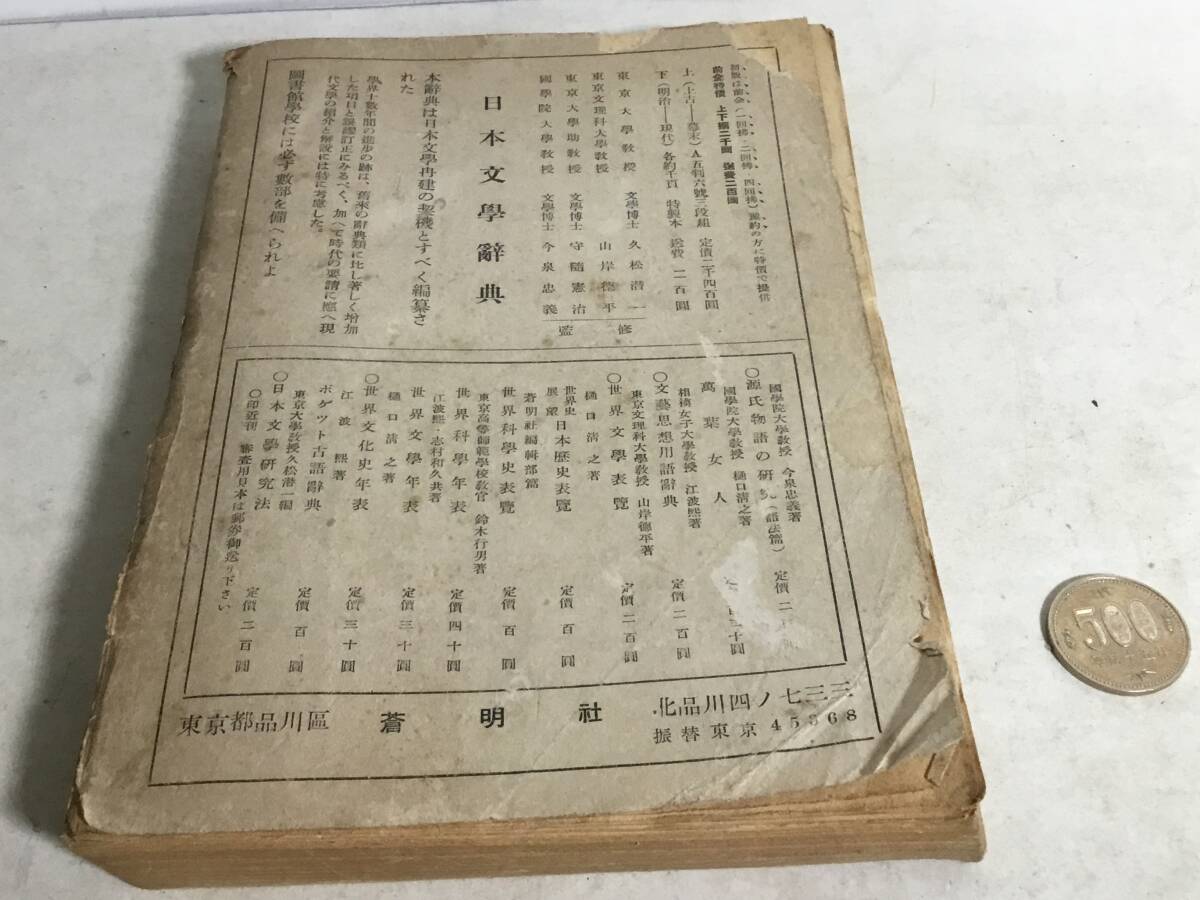 前金特價 上下揃二千圓 送費二百圓
上(上古――幕末)A五判六號三段組 定價二千四百圓
下(明治――現代)各約千頁 特製本 送費 二百圓
東京大學教授 文學博士 久松潛一
東京文理科大學教授 山岸德平
東京大學助教授 文學博士 守隨憲治
國學院大學教授 文學博士 今泉忠義
監修
日本文學辭典
本辭典は日本文學再建の契機とすべく編纂さ
れた
學界十數年間の進步の跡は、舊來の辭典類に比し著しく增加
した項目と誤謬訂正にみるべく、加へて時代の要請に應へ現
代文學の紹介と解說には特に考慮した。
圖書館學校には必ず數部を備へられよ
國學院大學教授 今泉忠義著
〇源氏物語の研究(語法篇) 定價二
國學院大學教授 樋口淸之著
萬葉女人 十圓
相模女子大學教授 江波熙著
〇文藝思想用語辭典 定價二百圓
東京文理科大學教授 山岸德平著
〇世界文學表覽 定價二百圓
樋口淸之著
世界史展望 日本歷史表覽 定價百圓
蒼明社編輯部篇
世界科學史表覽 定價百圓
東京高等師範學校教官 鈴木行男著
世界科學年表 定價四十圓
江波熙・志村和久共著
世界文學年表 定價三十圓
樋口淸之著
〇世界文化史年表 定價三十圓
江波熙著
ポケット古語辭典 定價百圓
東京大學教授久松潛一編
〇日本文學研究法 定價二百圓
〇印近刊 審査用見本は郵券御送り下さい
東京都品川區 蒼明社 北品川四ノ七三三
振替東京45368
500